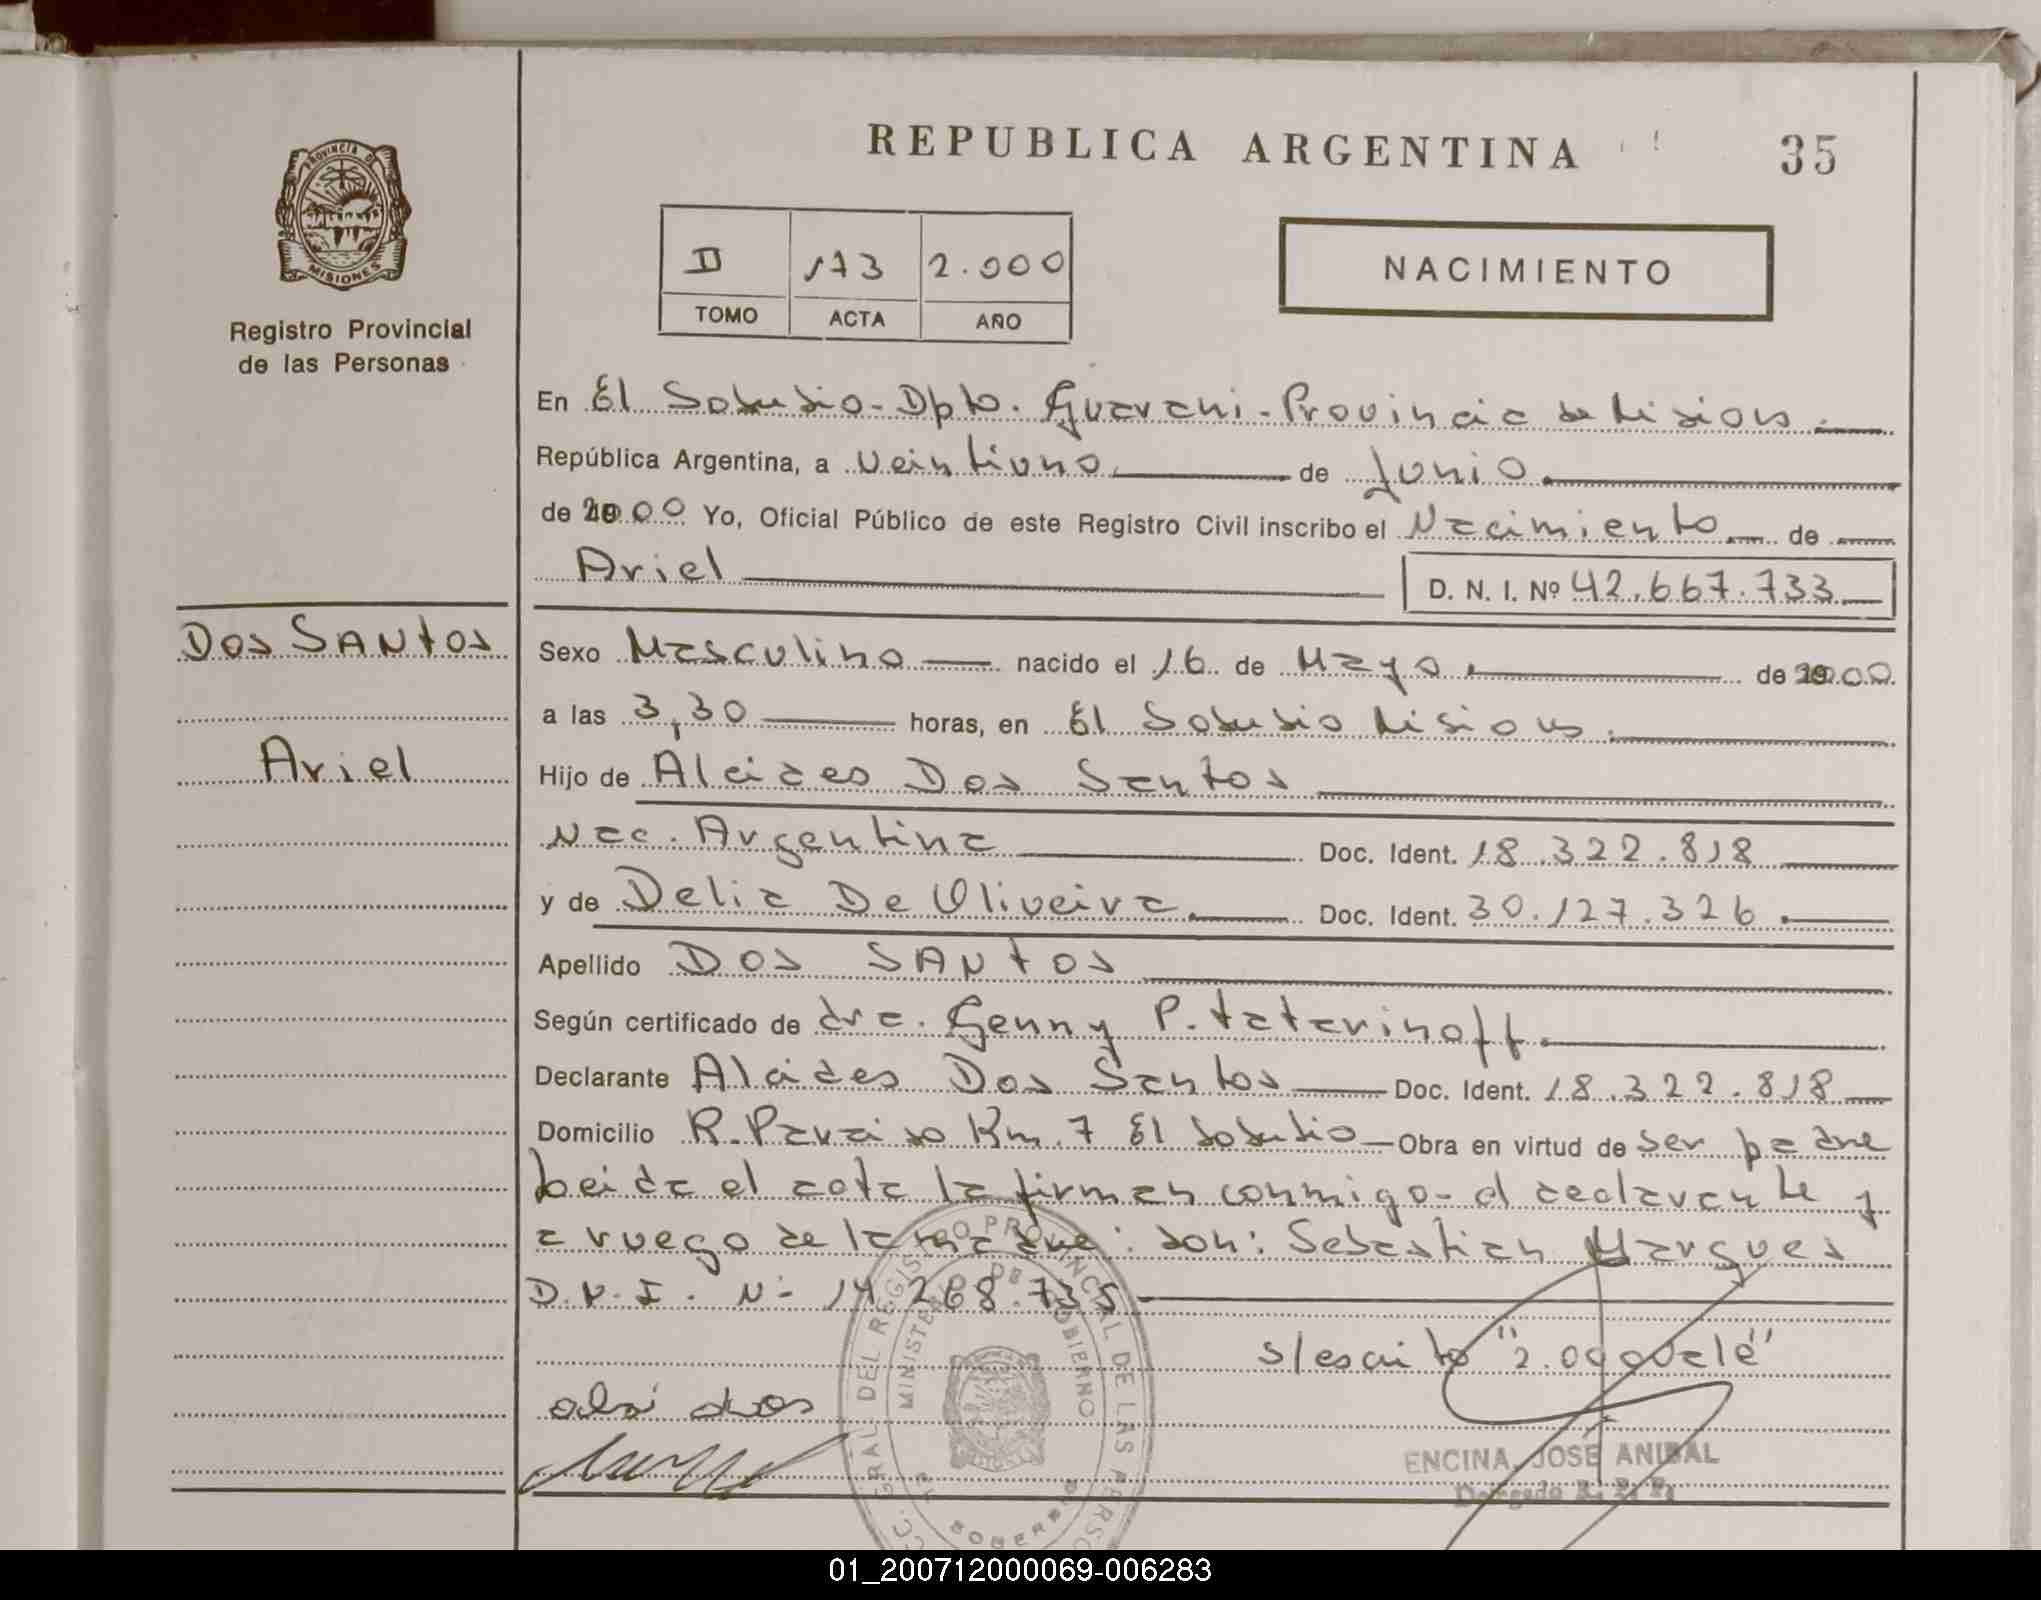 REPUBLICA ARGENTINA
35
PROVINCIA DE
MISIONES
Registro Provincial
de las Personas
II 173 2.000
TOMO ACTA AÑO
NACIMIENTO
En El Soberbio - Dpto. Guarani - Provincia de Misiones
República Argentina, a veintiuno de Junio
de 2000 Yo, Oficial Público de este Registro Civil inscribo el Nacimiento de
Ariel
D. N. I. Nº 42.667.733
DOS SANtOS
Ariel
Sexo Masculino nacido el 16 de Mayo de 2000
a las 3,30 horas, en El Soberbio Misiones
Hijo de Alcides Dos Santos
Nac. Argentina Doc. Ident. 18.322.818
y de Delia De Oliveira Doc. Ident. 30.127.326
Apellido DOS SANtOS
Según certificado de dra. Genny P. tatarinoff
Declarante Alcides Dos Santos Doc. Ident. 18.322.818
Domicilio R. Paraiso Km. 7 El Soberbio Obra en virtud de ser padre
Leida el acta la firman conmigo - el declarante y
a ruego de la madre: don: Sebastian Marques
D.N.I. Nº 14.268.735
S/escrito "2.000 vale"
REGISTRO PROVINCIAL DE LAS
MINISTERIO DE GOBIERNO
EL SOBERBIO
ENCINA, JOSE ANIBAL
Delegado R. P. P.
01_200712000069-006283